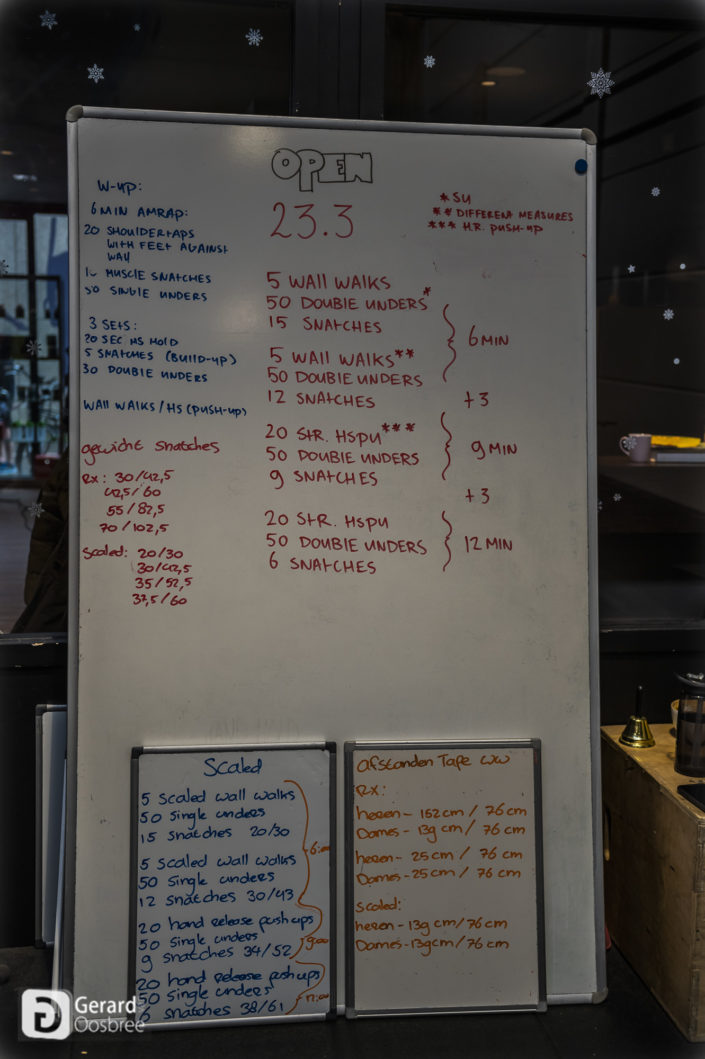 OPEN
23.3
W-UP:
6 MIN AMRAP:
20 SHOULDERTAPS
WITH FEET AGAINST
WALL
MUSCLE SNATCHES
50 SINGLE UNDERS
3 SETS:
20 SEC HS HOLD
5 SNATCHES (BUILD-UP)
30 DOUBLE UNDERS
WALL WALKS / HS (PUSH-UP)
gewicht snatches
Rx: 30/42,5
42,5/60
55/82,5
70/102,5
Scaled: 20/30
30/42,5
35/52,5
37,5/60
5 WALL WALKS
50 DOUBLE UNDERS*
15 SNATCHES
6 MIN
5 WALL WALKS**
50 DOUBLE UNDERS
12 SNATCHES
+3
20 STR. HSPU***
50 DOUBLE UNDERS
9 SNATCHES
9 MIN
+3
20 STR. HSPU
50 DOUBLE UNDERS
6 SNATCHES
12 MIN
* SU
** DIFFERENT MEASURES
*** H.R. PUSH-UP
Scaled
5 Scaled wall walks
50 single unders
15 snatches 20/30
5 scaled wall walks
50 single unders
12 snatches 30/43
6:00
20 hand release push ups
50 single unders
9 snatches 34/52
9:00
20 hand release push ups
50 single unders
6 snatches 38/61
12:00
Afstanden Tape WW
Rx:
heren - 152 cm / 76 cm
Dames - 139 cm / 76 cm
heren - 25 cm / 76 cm
Dames - 25 cm / 76 cm
Scaled:
heren - 139 cm / 76 cm
Dames - 139 cm / 76 cm
Gerard
Oosbree